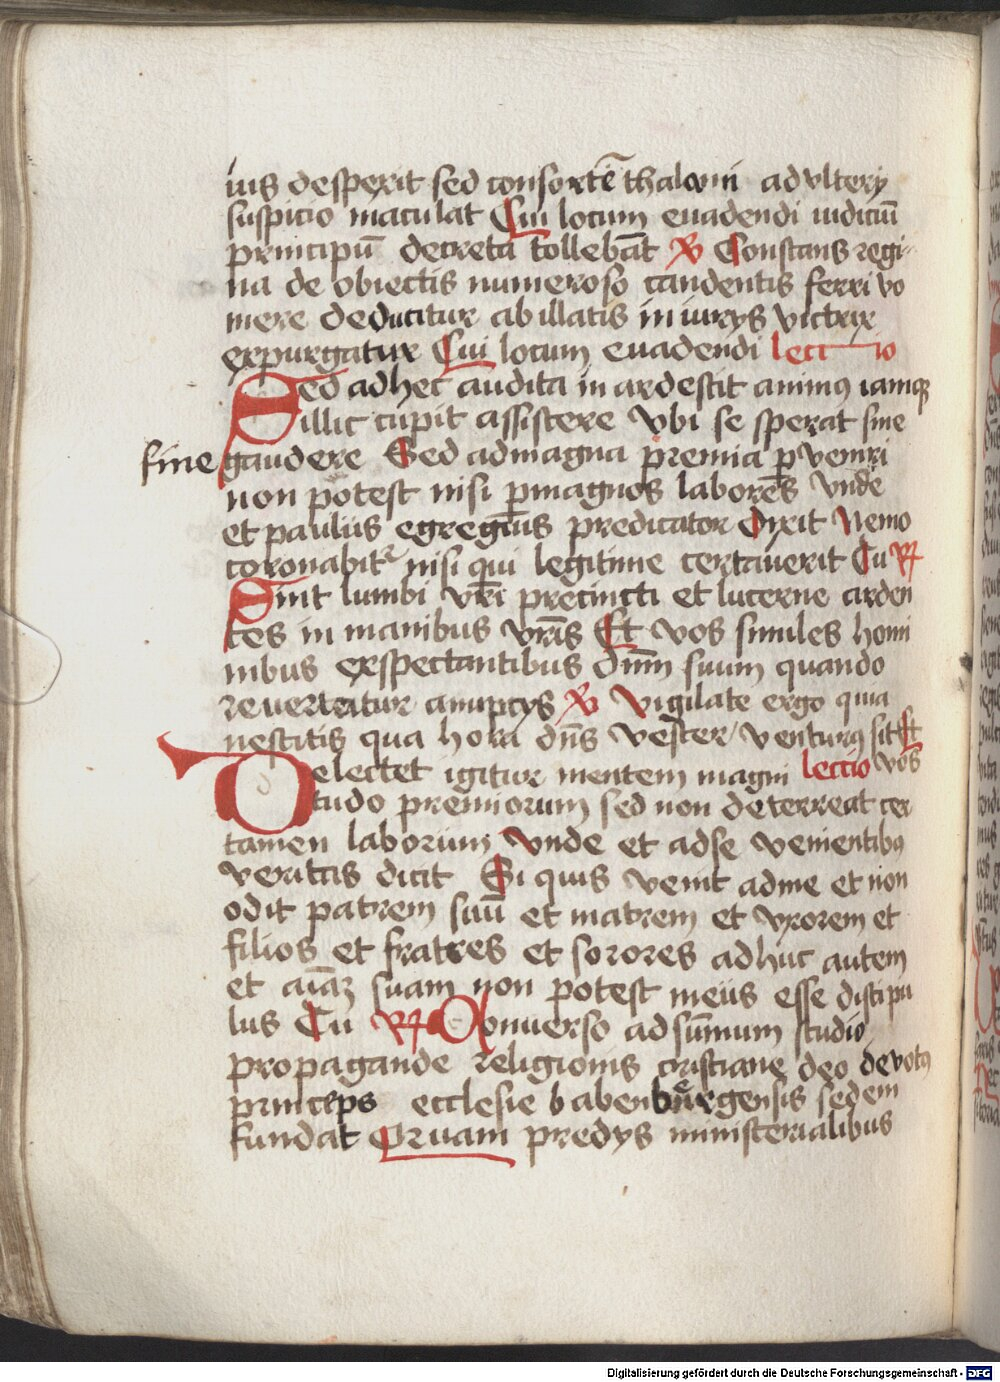 ius desperit sed consorte̅ thalami adultery
suspicio maculat Cui locum euadendi iudiciu̅
principu̅ decreta tolleba̅t ℣ Constans regi-
na de obiectis numeroso candentis ferri vo
mere deducitur ab illatis in iurys victrix
expurgatur Cui locum euadendi lectio
Sed adhec audita in ardescit animꝰ iamqꝫ
illic cupit assistere vbi se sperat sine
fine gaudere Sed admagna premia ꝑveniri
non potest nisi ꝑmagnos labores vnde
et paulus egregius predicator dixit Nemo
coronabitᷣ nisi qui legitime certauerit Cu ℟
Sint lumbi vr̅i precincti et lucerne arden
tes in manibus vr̅is Et vos similes homi
nibus exspectantibus dn̅m suum quando
reuertatur anuptys ℣ vigilate ergo quia
nescitis qua hora dn̅s vester venturꝰ sit Et
Delectet igitur mentem magni lectio vos
tudo premiorum sed non deterreat cer
tamen laborum vnde et adse venientibꝰ
veritas dicit Si quis venit adme et non
odit patrem suu̅ et matrem et vxorem et
filios et fratres et sorores adhuc autem
et aia̅ꝫ suam non potest meus esse discipu
lus Cu ℟ Conuerso adsu̅mum studio
propagande religionis cristiane deo devotꝰ
princeps ecclesie babenbergensis sedem
fundat Qruam predys ministerialibus
Digitalisierung gefördert durch die Deutsche Forschungsgemeinschaft - DFG